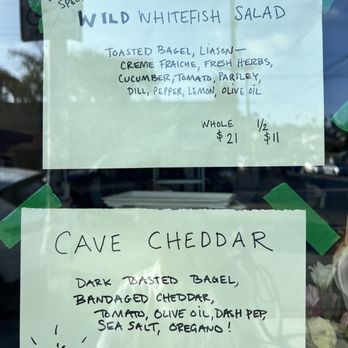 SPEC
WILD WHITEFISH SALAD
TOASTED BAGEL, LIASON—
CREME FRAICHE, FRESH HERBS,
CUCUMBER, TOMATO, PARSLEY,
DILL, PEPPER, LEMON, OLIVE OIL
WHOLE 1/2
$21 $11
CAVE CHEDDAR
DARK TOASTED BAGEL,
BANDAGED CHEDDAR,
TOMATO, OLIVE OIL, DASH PEP,
SEA SALT, OREGANO!